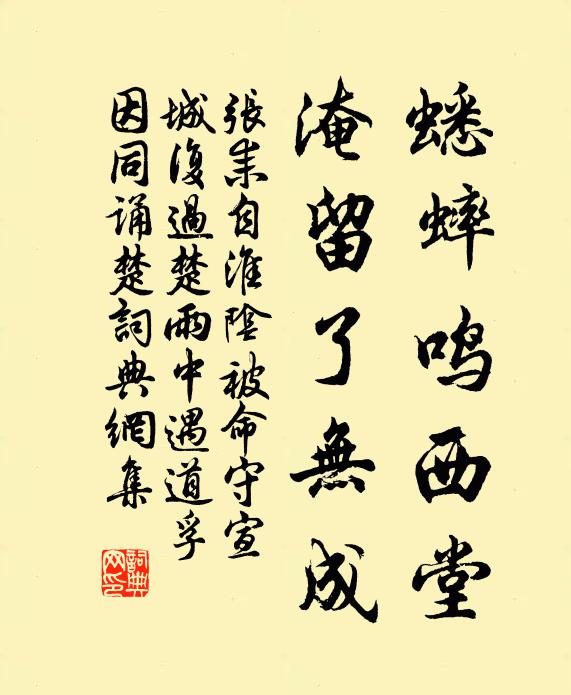 蟋蟀鸣西堂
淹留了無成
張耒自淮陰被命守宣
城復過楚雨中遇道孚
因同誦楚詞典網集
詞典
网印